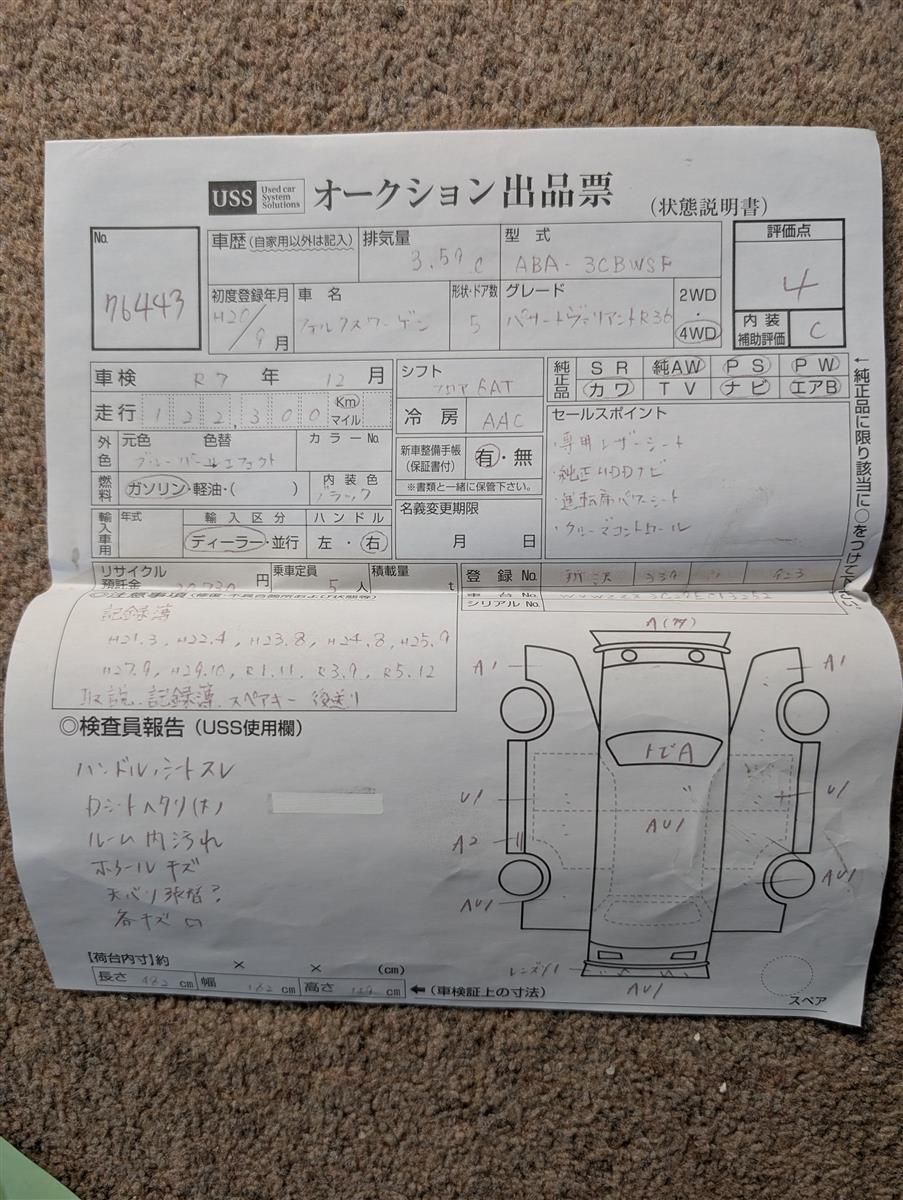 USS Used car System Solutions オークション出品票 (状態説明書)
No. 76443
車歴 (自家用以外は記入)
排気量 3.59 c
型式 ABA-3CBWSF
評価点 4
初度登録年月 H20/9月
車名 フォルクスワーゲン
形状・ドア数 5
グレード パサートヴァリアントR36
2WD・4WD
内装補助評価 C
車検 R7年 12月
シフト フロア6AT
純正品 SR 純AW PS PW
カワ TV ナビ エアB
走行 122,300 Km マイル
冷房 AAC
セールスポイント
・専用レザーシート
・純正HDDナビ
・運転席パワーシート
・クルーズコントロール
←純正品に限り該当に○をつけて下さい
外色 元色 色替 カラーNo.
ブルーパールエフェクト
新車整備手帳(保証書付) 有・無
※書類と一緒に保管下さい。
燃料 ガソリン・軽油・( )
内装色 ブラック
名義変更期限 月 日
輸入車用 年式 輸入区分 ハンドル
ディーラー・並行 左・右
リサイクル預託金 円
乗車定員 5人
積載量 t
登録No. 所沢
シリアルNo.
記録簿
H21.3, H22.4, H23.8, H24.8, H25.9
H27.9, H29.10, R1.11, R3.9, R5.12
取説、記録簿、スペアキー 後送り
◎検査員報告(USS使用欄)
ハンドル、シートスレ
Dシートヘタリ(大)
ルーム内汚れ
ホイールキズ
天バリ張替?
各キズ
A1
A1
トビA
U1
U1
AU1
A2
AU1
AU1
AU1
スペア
【荷台内寸】約 × × (cm)
長さ 482cm 幅 182cm 高さ cm ←(車検証上の寸法)